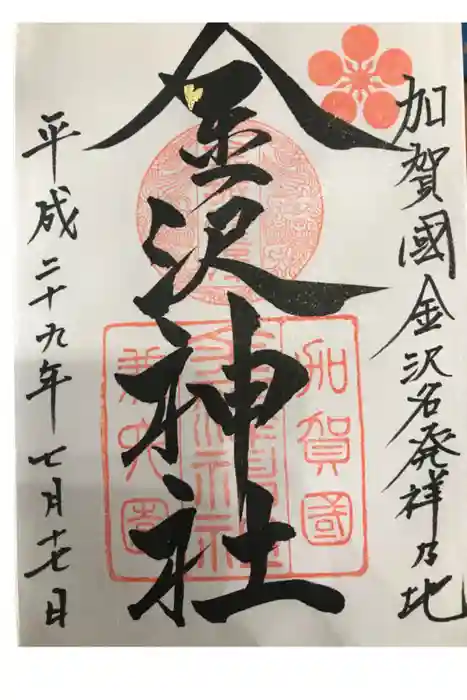 加賀國金沢名発祥乃地
金沢神社
加賀國
兼六園
平成二十九年七月十七日